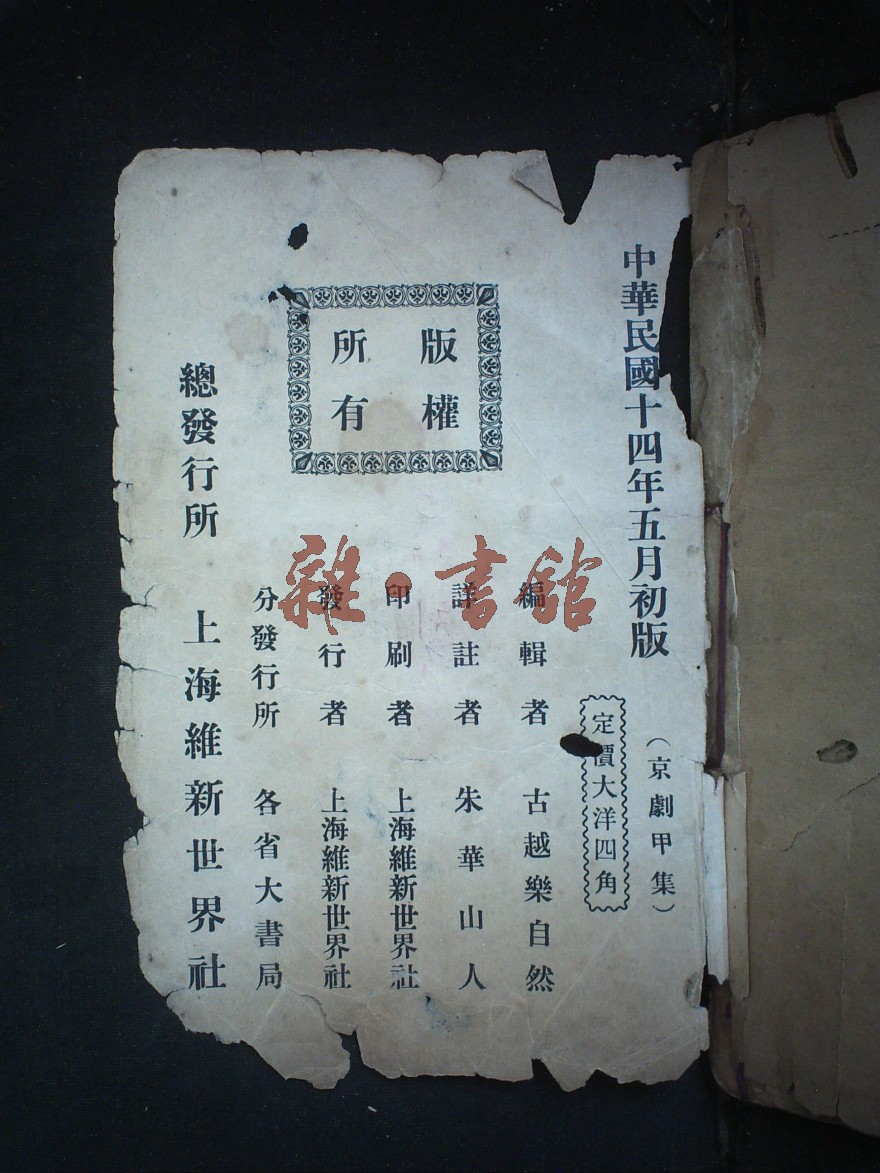 中華民國十四年五月初版
（京劇甲集）
定價大洋四角
版權
所有
編輯者 古越樂自然
詳註者 朱華山人
印刷者 上海維新世界社
發行者 上海維新世界社
分發行所 各省大書局
總發行所 上海維新世界社
雜·書館